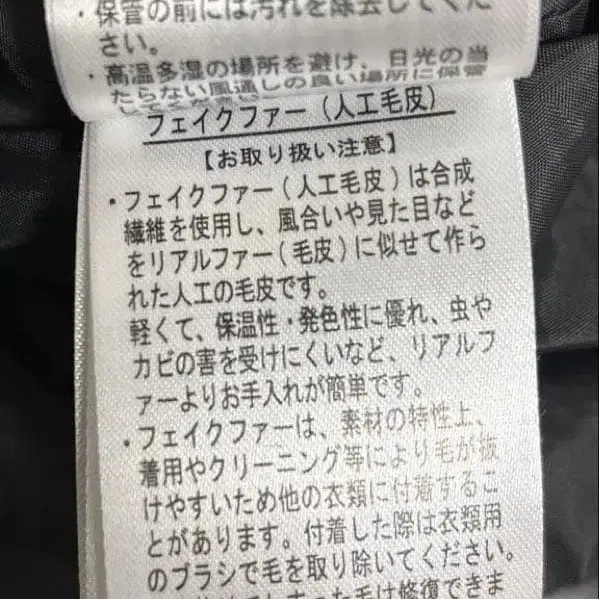 ・保管の前には汚れを除去してくだ
さい。
・高温多湿の場所を避け、日光の当
たらない風通しの良い場所に保管
フェイクファー(人工毛皮)
【お取り扱い注意】
・フェイクファー(人工毛皮)は合成
繊維を使用し、風合いや見た目など
をリアルファー(毛皮)に似せて作ら
れた人工の毛皮です。
軽くて、保温性・発色性に優れ、虫や
カビの害を受けにくいなど、リアルフ
ァーよりお手入れが簡単です。
・フェイクファーは、素材の特性上、
着用やクリーニング等により毛が抜
けやすいため他の衣類に付着するこ
とがあります。付着した際は衣類用
のブラシで毛を取り除いてください。
しまった毛は修復できま